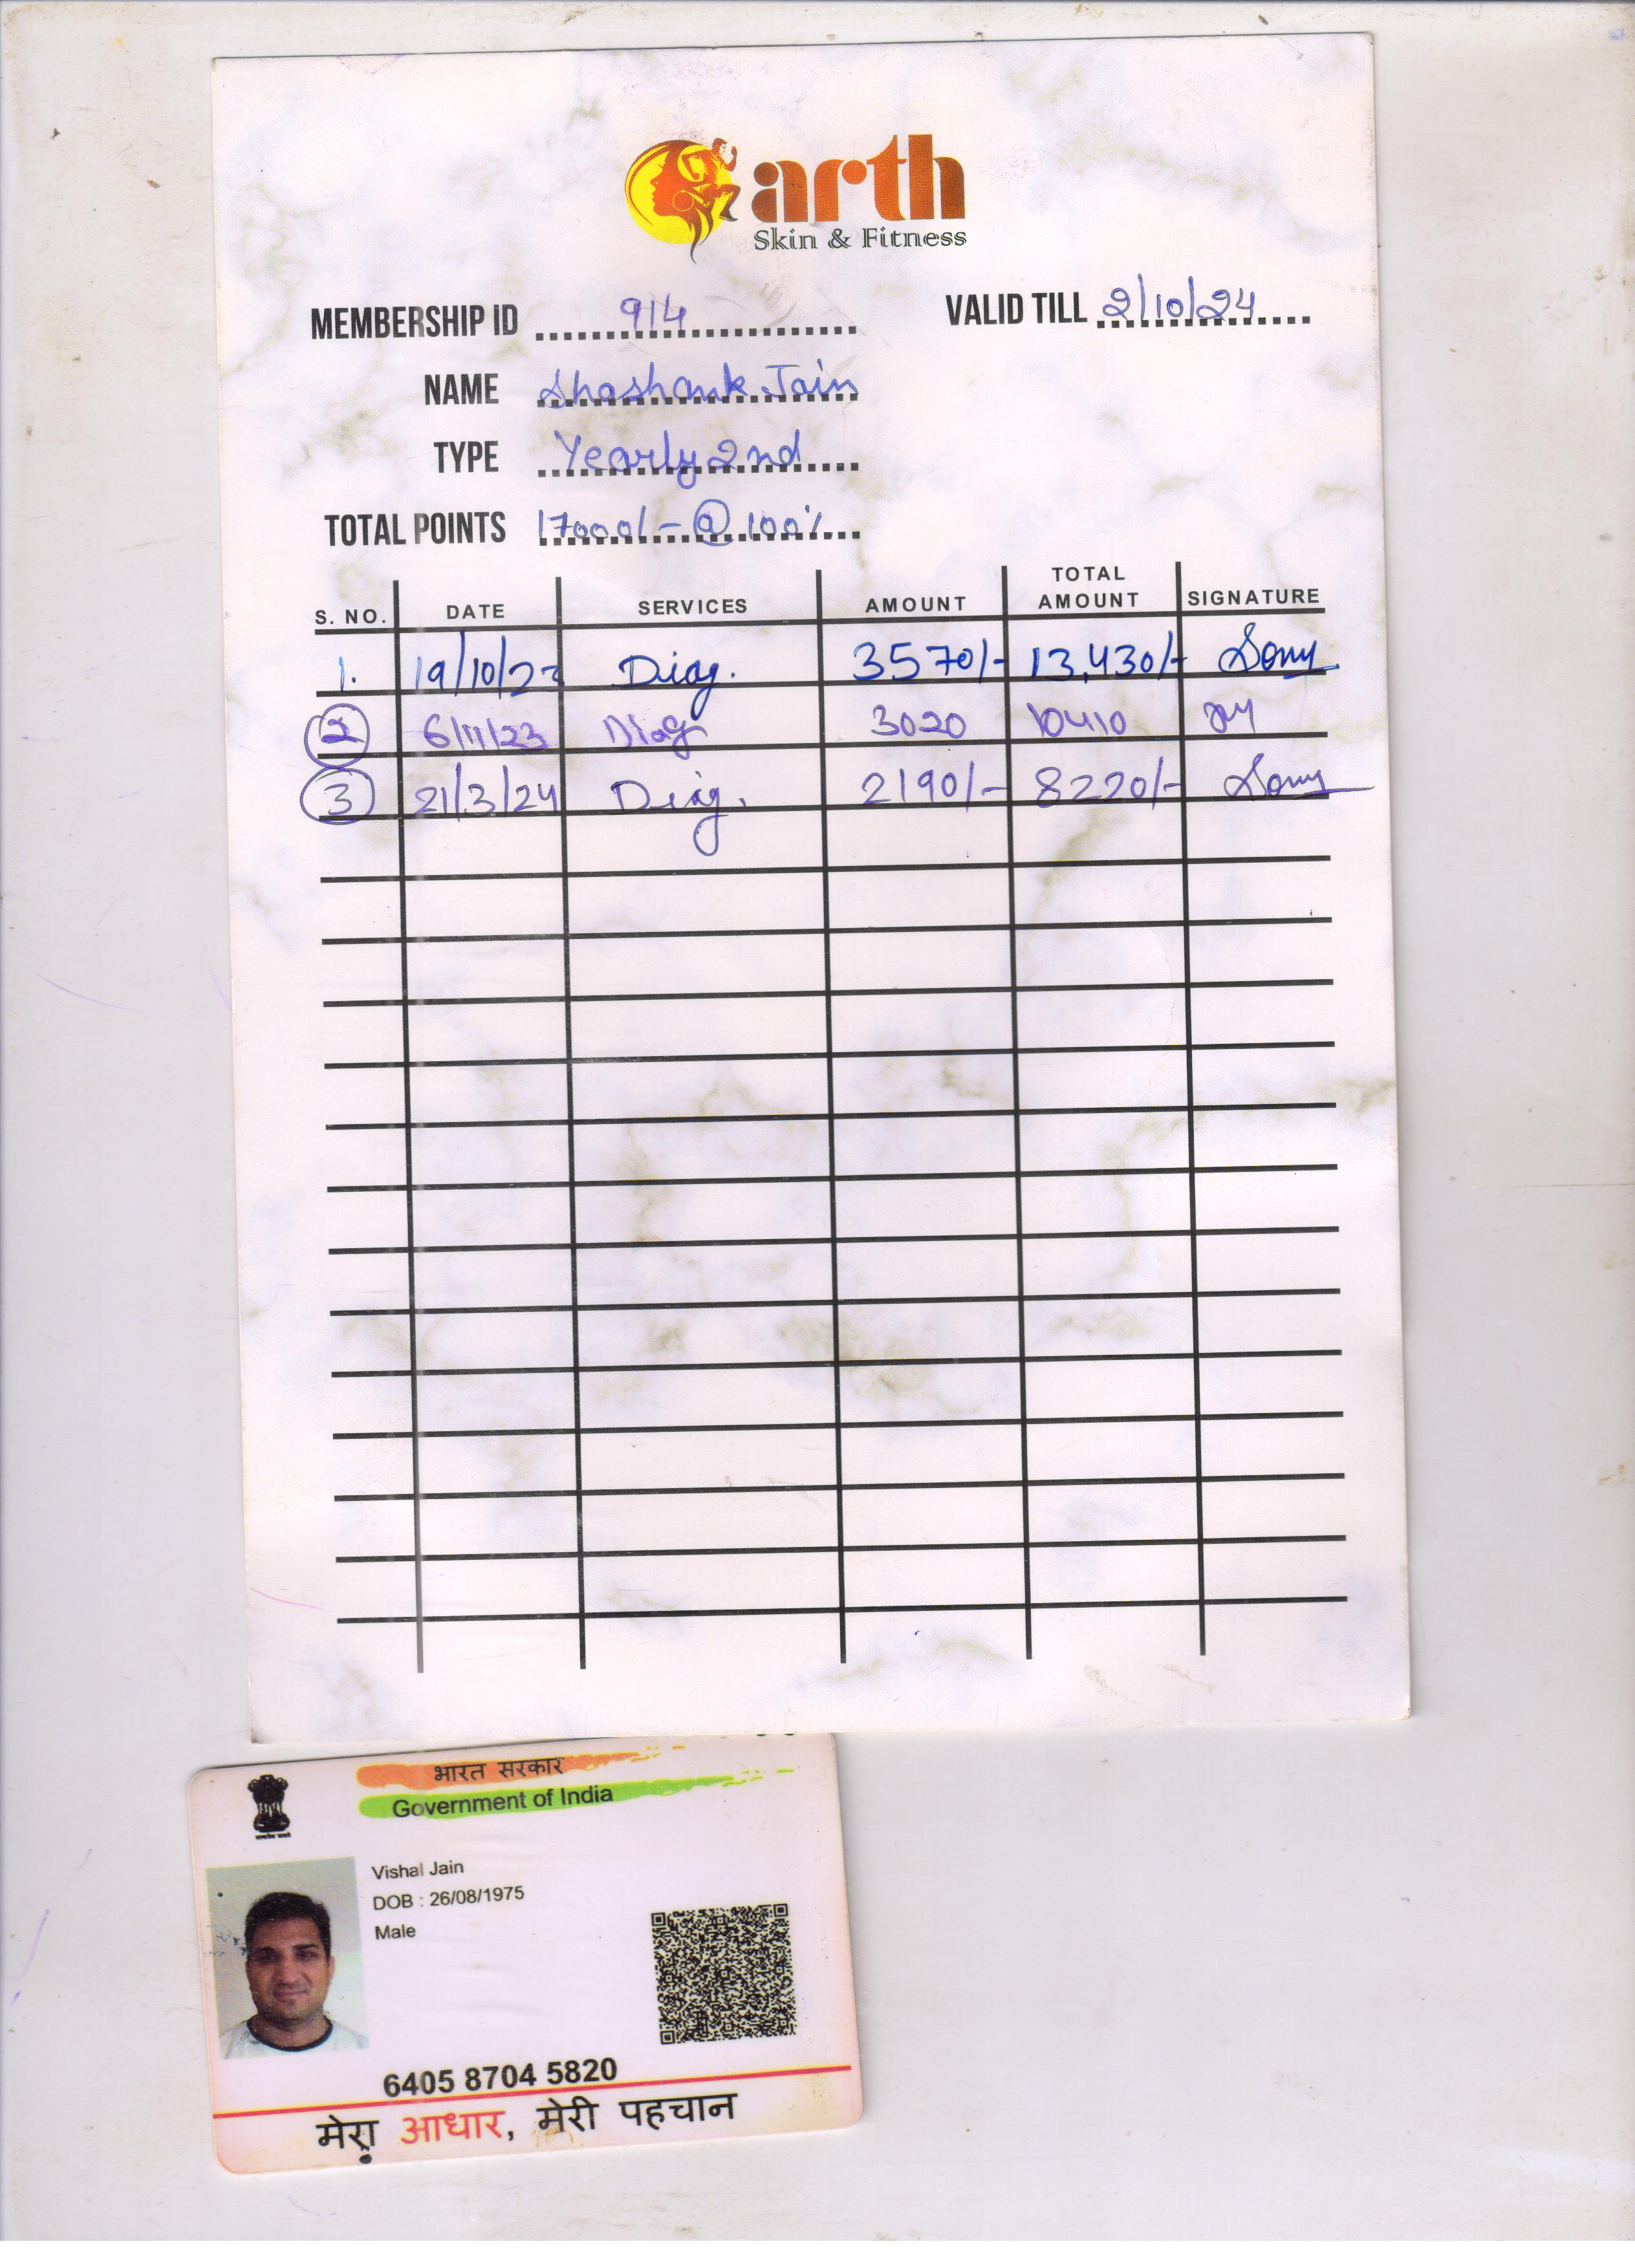 arth
Skin & Fitness
MEMBERSHIP ID 914 VALID TILL 2/10/24
NAME Shashank Jain
TYPE Yearly 2nd
TOTAL POINTS 17000/- @ 100%
S. NO. DATE SERVICES AMOUNT TOTAL AMOUNT SIGNATURE
1. 19/10/23 Diag. 3570/- 13,430/- Sonu
2 6/11/23 Diag 3020 10410
3 21/3/24 Diag. 2190/- 8220/- Sonu
भारत सरकार
Government of India
Vishal Jain
DOB : 26/08/1975
Male
6405 8704 5820
मेरा आधार, मेरी पहचान